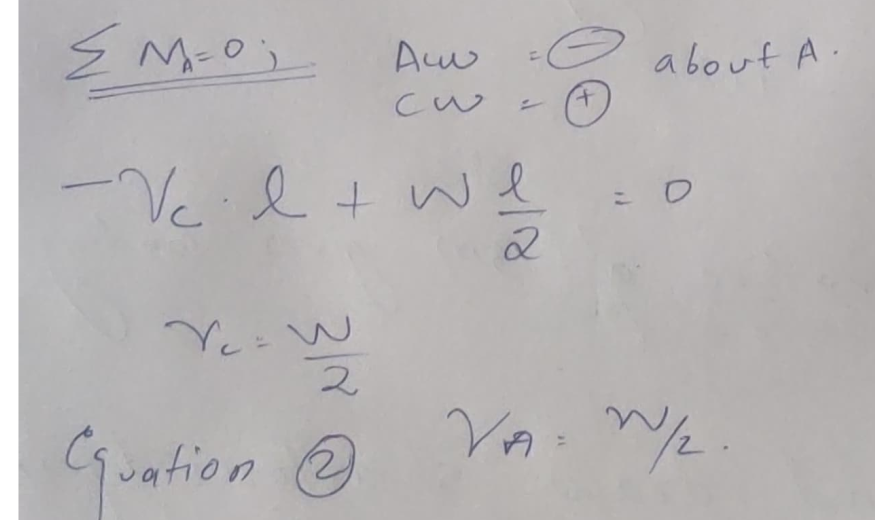 Σ M_A = 0 ; ACW = ⊖ about A.
CW = ⊕
-V_C . l + W l/2 = 0
V_C = W/2
Equation ② V_A = W/2.